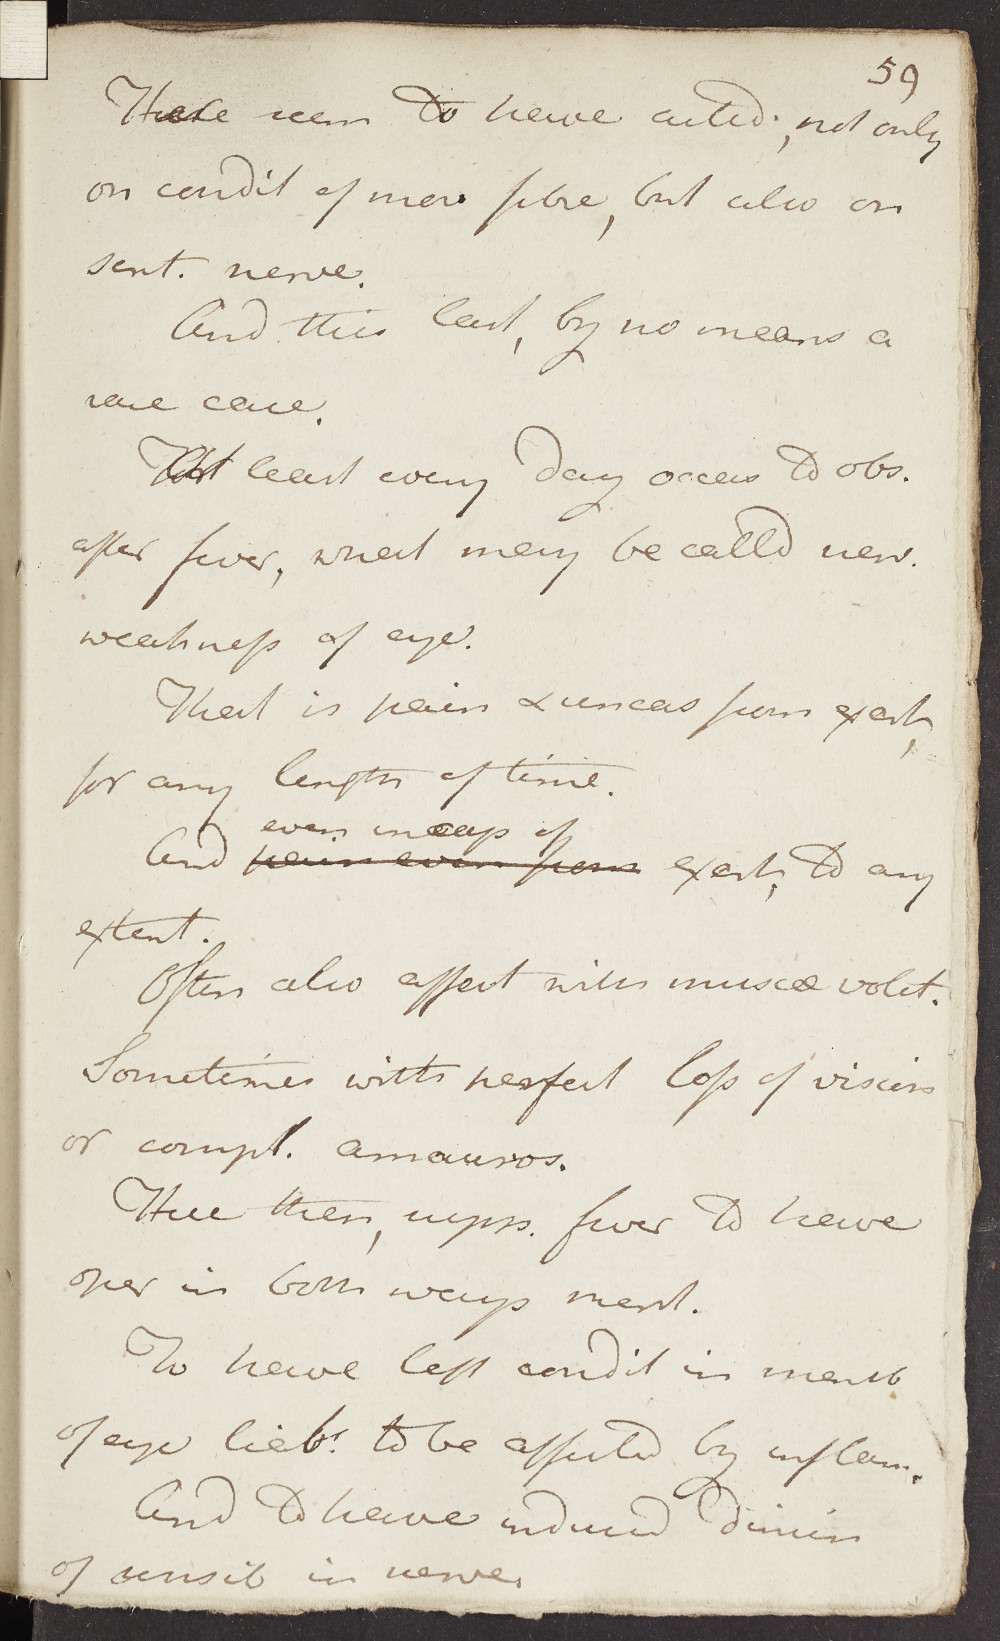 59
There seem to have acted, not only
on condit of mov. fibre, but also on
sent. nerve.
And this last, by no means a
rare case.
At least every day occas to obs.
after fever, what may be call'd nerv.
weakness of eye.
That is pain & uneas from exert,
for any length of time.
even incap of
And pain even from exert, to any
extent.
Often also affect with muscæ volit.
Sometimes with perfect loss of vision
or compl. amauros.
Here then, supps. fever to have
oper in both ways ment.
To have left condit in memb
of eye liab. to be affected by inflam.
And to have induced dimin
of sensib in nerve.